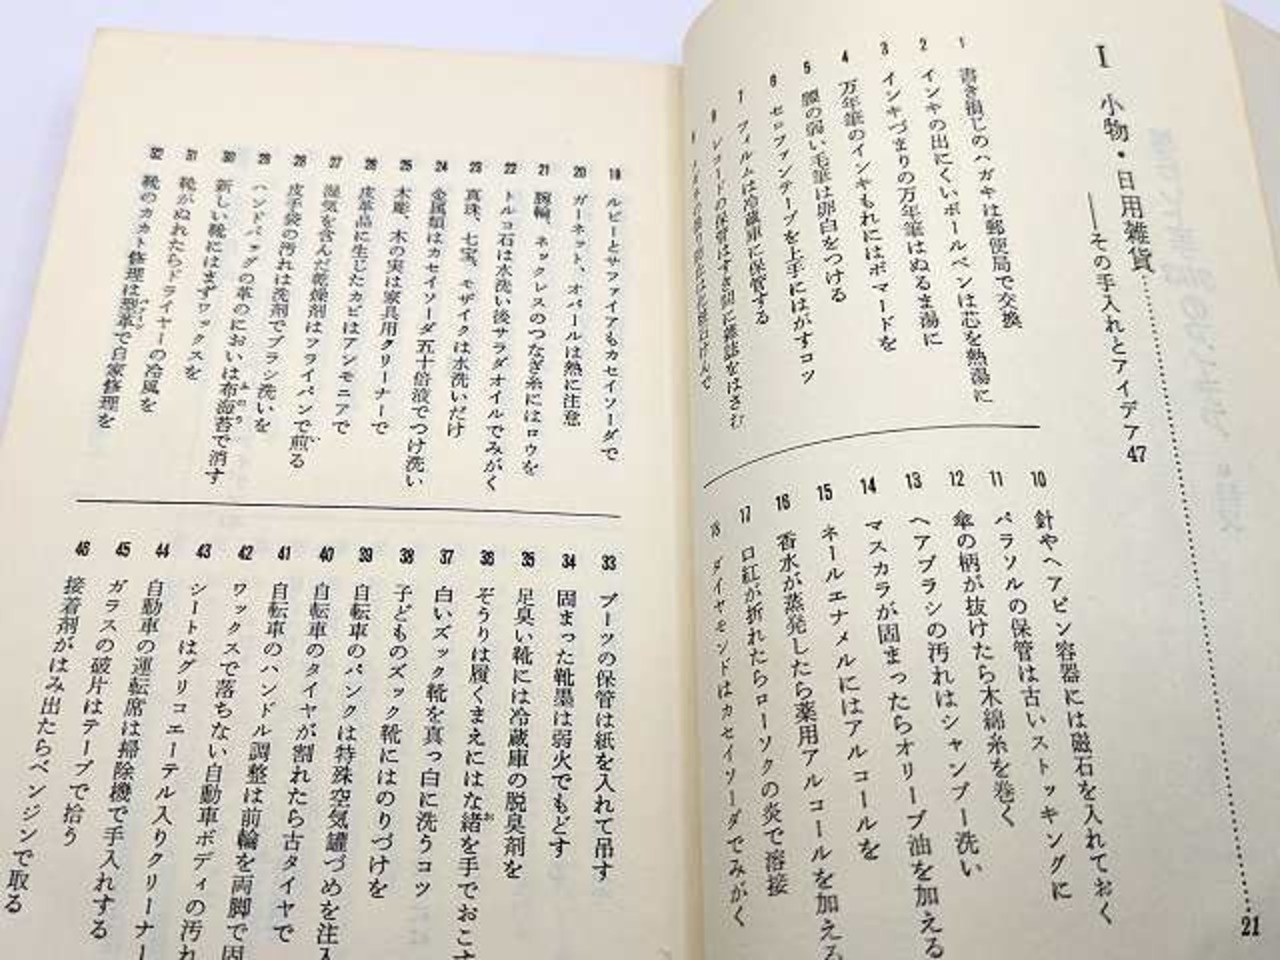 I 小物・日用雑貨
——その手入れとアイデア47
21
1 書き損じのハガキは郵便局で交換
2 インキの出にくいボールペンは芯を熱湯に
3 インキづまりの万年筆はぬるま湯に
4 万年筆のインキもれにはポマードを
5 腰の弱い毛筆は卵白をつける
6 セロファンテープを上手にはがすコツ
7 フィルムは冷蔵庫に保管する
8 レコードの保管はすき間に雑誌をはさむ
9
10 針やヘアピン容器には磁石を入れておく
11 パラソルの保管は古いストッキングに
12 傘の柄が抜けたら木綿糸を巻く
13 ヘアブラシの汚れはシャンプー洗い
14 マスカラが固まったらオリーブ油を加える
15 ネールエナメルにはアルコールを
16 香水が蒸発したら薬用アルコールを加える
17 口紅が折れたらローソクの炎で溶接
18 ダイヤモンドはカセイソーダでみがく
19 ルビーとサファイアもカセイソーダで
20 ガーネット、オパールは熱に注意
21 腕輪、ネックレスのつなぎ糸にはロウを
22 トルコ石は水洗い後サラダオイルでみがく
23 真珠、七宝、モザイクは水洗いだけ
24 金属類はカセイソーダ五十倍液でつけ洗い
25 木彫、木の実は家具用クリーナーで
26 皮革品に生じたカビはアンモニアで
27 湿気を含んだ乾燥剤はフライパンで煎る
28 皮手袋の汚れは洗剤でブラシ洗いを
29 ハンドバッグの革のにおいは布海苔で消す
30 新しい靴にはまずワックスを
31 靴がぬれたらドライヤーの冷風を
32 靴のカカト修理は型革で自家修理を
33 ブーツの保管は紙を入れて吊す
34 固まった靴墨は弱火でもどす
35 足臭い靴には冷蔵庫の脱臭剤を
36 ぞうりは履くまえにはな緒を手でおこす
37 白いズック靴を真っ白に洗うコツ
38 子どものズック靴にはのりづけを
39 自転車のパンクは特殊空気罐づめを注入
40 自転車のタイヤが割れたら古タイヤで
41 自転車のハンドル調整は前輪を両脚で固
42 ワックスで落ちない自動車ボディの汚れ
43 シートはグリコエーテル入りクリーナー
44 自動車の運転席は掃除機で手入れする
45 ガラスの破片はテープで拾う
46 接着剤がはみ出たらベンジンで取る